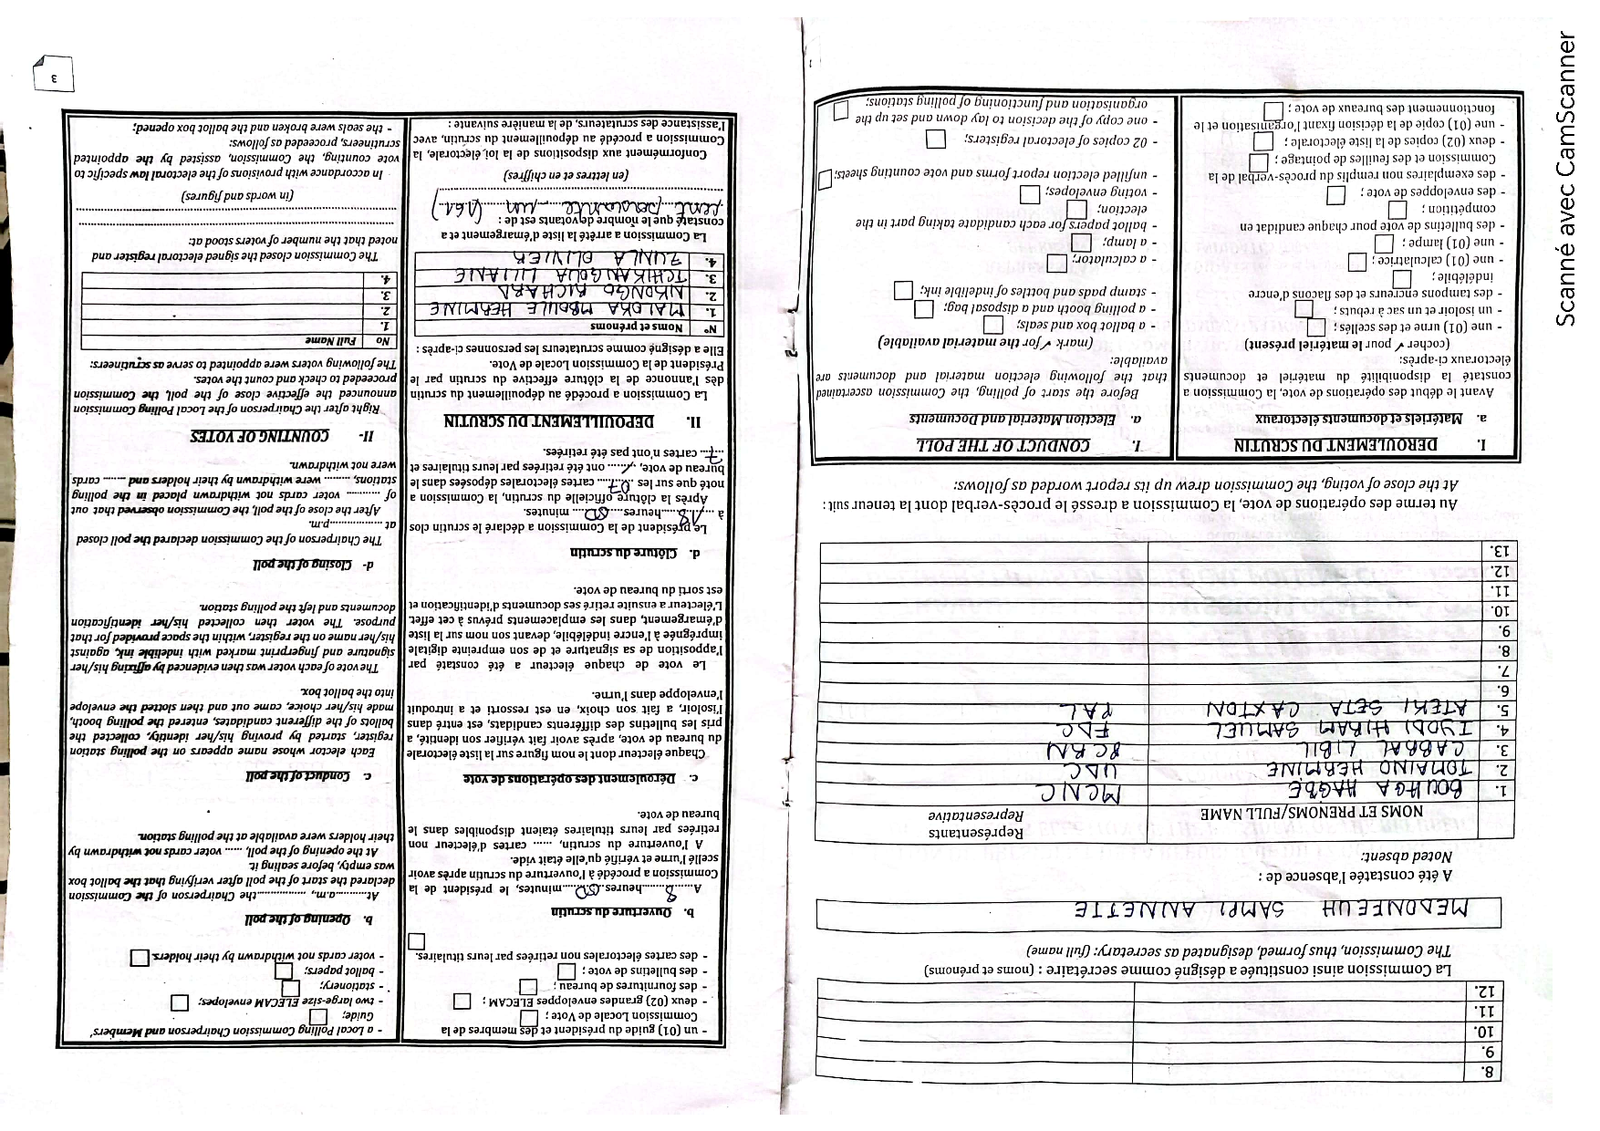 8.
9.
10.
11.
12.
La Commission ainsi constituée a désigné comme secrétaire : (noms et prénoms)
The Commission, thus formed, designated as secretary: (full name)
MEDONFEUH SAMPI ANNETTE
A été constatée l'absence de :
Noted absent:
NOMS ET PRÉNOMS/FULL NAME Représentants
Representative
1. BOUHGA HAGBE MCNC
2. TOMAINO HERMINE UDC
3. CABRAL LIBII PCRN
4. IYODI HIRAM SAMUEL FDC
5. ATEKI SETA CAXTON PAL
6.
7.
8.
9.
10.
11.
12.
13.
Au terme des opérations de vote, la Commission a dressé le procès-verbal dont la teneur suit :
At the close of voting, the Commission drew up its report worded as follows:
I. DEROULEMENT DU SCRUTIN
a. Matériels et documents électoraux
Avant le début des opérations de vote, la Commission a
constaté la disponibilité du matériel et documents
électoraux ci-après:
(cocher ✓ pour le matériel présent)
- une (01) urne et des scellés ;
- un isoloir et un sac à rebuts ;
- des tampons encreur et des flacons d'encre
indélébile ;
- une (01) calculatrice ;
- une (01) lampe ;
- des bulletins de vote pour chaque candidat en
compétition ;
- des enveloppes de vote ;
- des exemplaires non remplis du procès-verbal de la
Commission et des feuilles de pointage ;
- deux (02) copies de la liste électorale ;
- une (01) copie de la décision fixant l'organisation et le
fonctionnement des bureaux de vote ;
I. CONDUCT OF THE POLL
a. Election Material and Documents
Before the start of polling, the Commission ascertained
that the following election material and documents are
available:
(mark ✓ for the material available)
- a ballot box and seals;
- a polling booth and a disposal bag;
- stamp pads and bottles of indelible ink;
- a calculator;
- a lamp;
- ballot papers for each candidate taking part in the
election;
- voting envelopes;
- unfilled election report forms and vote counting sheets;
- 02 copies of electoral registers;
- one copy of the decision to lay down and set up the
organisation and functioning of polling stations;
- un (01) guide du président et des membres de la
Commission Locale de Vote ;
- deux (02) grandes enveloppes ELECAM ;
- des fournitures de bureau ;
- des bulletins de vote ;
- des cartes électorales non retirées par leurs titulaires.
b. Ouverture du scrutin
A 8 heures 00 minutes, le président de la
Commission a procédé à l'ouverture du scrutin après avoir
scellé l'urne et vérifié qu'elle était vide.
A l'ouverture du scrutin, ...... cartes d'électeur non
retirées par leurs titulaires étaient disponibles dans le
bureau de vote.
c. Déroulement des opérations de vote
Chaque électeur dont le nom figure sur la liste électorale
du bureau de vote, après avoir fait vérifier son identité, a
pris les bulletins des différents candidats, est entré dans
l'isoloir, a fait son choix, en est ressorti et a introduit
l'enveloppe dans l'urne.
Le vote de chaque électeur a été constaté par
l'apposition de sa signature et de son empreinte digitale
imprégnée à l'encre indélébile, devant son nom sur la liste
d'émargement, dans les emplacements prévus à cet effet.
L'électeur a ensuite retiré ses documents d'identification et
est sorti du bureau de vote.
d. Clôture du scrutin
Le président de la Commission a déclaré le scrutin clos
à 18 heures 00 minutes.
Après la clôture officielle du scrutin, la Commission a
noté que sur les 07 cartes électorales déposées dans le
bureau de vote, / ont été retirées par leurs titulaires et
7 cartes n'ont pas été retirées.
II. DEPOUILLEMENT DU SCRUTIN
La Commission a procédé au dépouillement du scrutin
dès l'annonce de la clôture effective du scrutin par le
Président de la Commission Locale de Vote.
Elle a désigné comme scrutateurs les personnes ci-après :
N° Noms et prénoms
1. MALOKA MBOULE HERMINE
2. NKONGO RICHARD
3. TCHIKANGOUA LILIANE
4. ZUNLA OLIVIER
La Commission a arrêté la liste d'émargement et a
constaté que le nombre de votants est de :
cent soixante un (161)
(en lettres et en chiffres)
Conformément aux dispositions de la loi électorale, la
Commission a procédé au dépouillement du scrutin, avec
l'assistance des scrutateurs, de la manière suivante :
- a Local Polling Commission Chairperson and Members'
Guide;
- two large-size ELECAM envelopes;
- stationery;
- ballot papers;
- voter cards not withdrawn by their holders.
b. Opening of the poll
At..........a.m, ...............the Chairperson of the Commission
declared the start of the poll after verifying that the ballot box
was empty, before sealing it.
At the opening of the poll, ...... voter cards not withdrawn by
their holders were available at the polling station.
c. Conduct of the poll
Each elector whose name appears on the polling station
register, started by proving his/her identity, collected the
ballots of the different candidates, entered the polling booth,
made his/her choice, came out and then slotted the envelope
into the ballot box.
The vote of each voter was then evidenced by affixing his/her
signature and fingerprint marked with indelible ink, against
his/her name on the register, within the space provided for that
purpose. The voter then collected his/her identification
documents and left the polling station.
d- Closing of the poll
The Chairperson of the Commission declared the poll closed
at ..................p.m.
After the close of the poll, the Commission observed that out
of .......... voter cards not withdrawn placed in the polling
stations, ........ were withdrawn by their holders and ...... cards
were not withdrawn.
II- COUNTING OF VOTES
Right after the Chairperson of the Local Polling Commission
announced the effective close of the poll, the Commission
proceeded to check and count the votes.
The following voters were appointed to serve as scrutineers:
No Full Name
1.
2.
3.
4.
The Commission closed the signed electoral register and
noted that the number of voters stood at:
(in words and figures)
In accordance with provisions of the electoral law specific to
vote counting, the Commission, assisted by the appointed
scrutineers, proceeded as follows:
- the seals were broken and the ballot box opened;
3
Scanné avec CamScanner